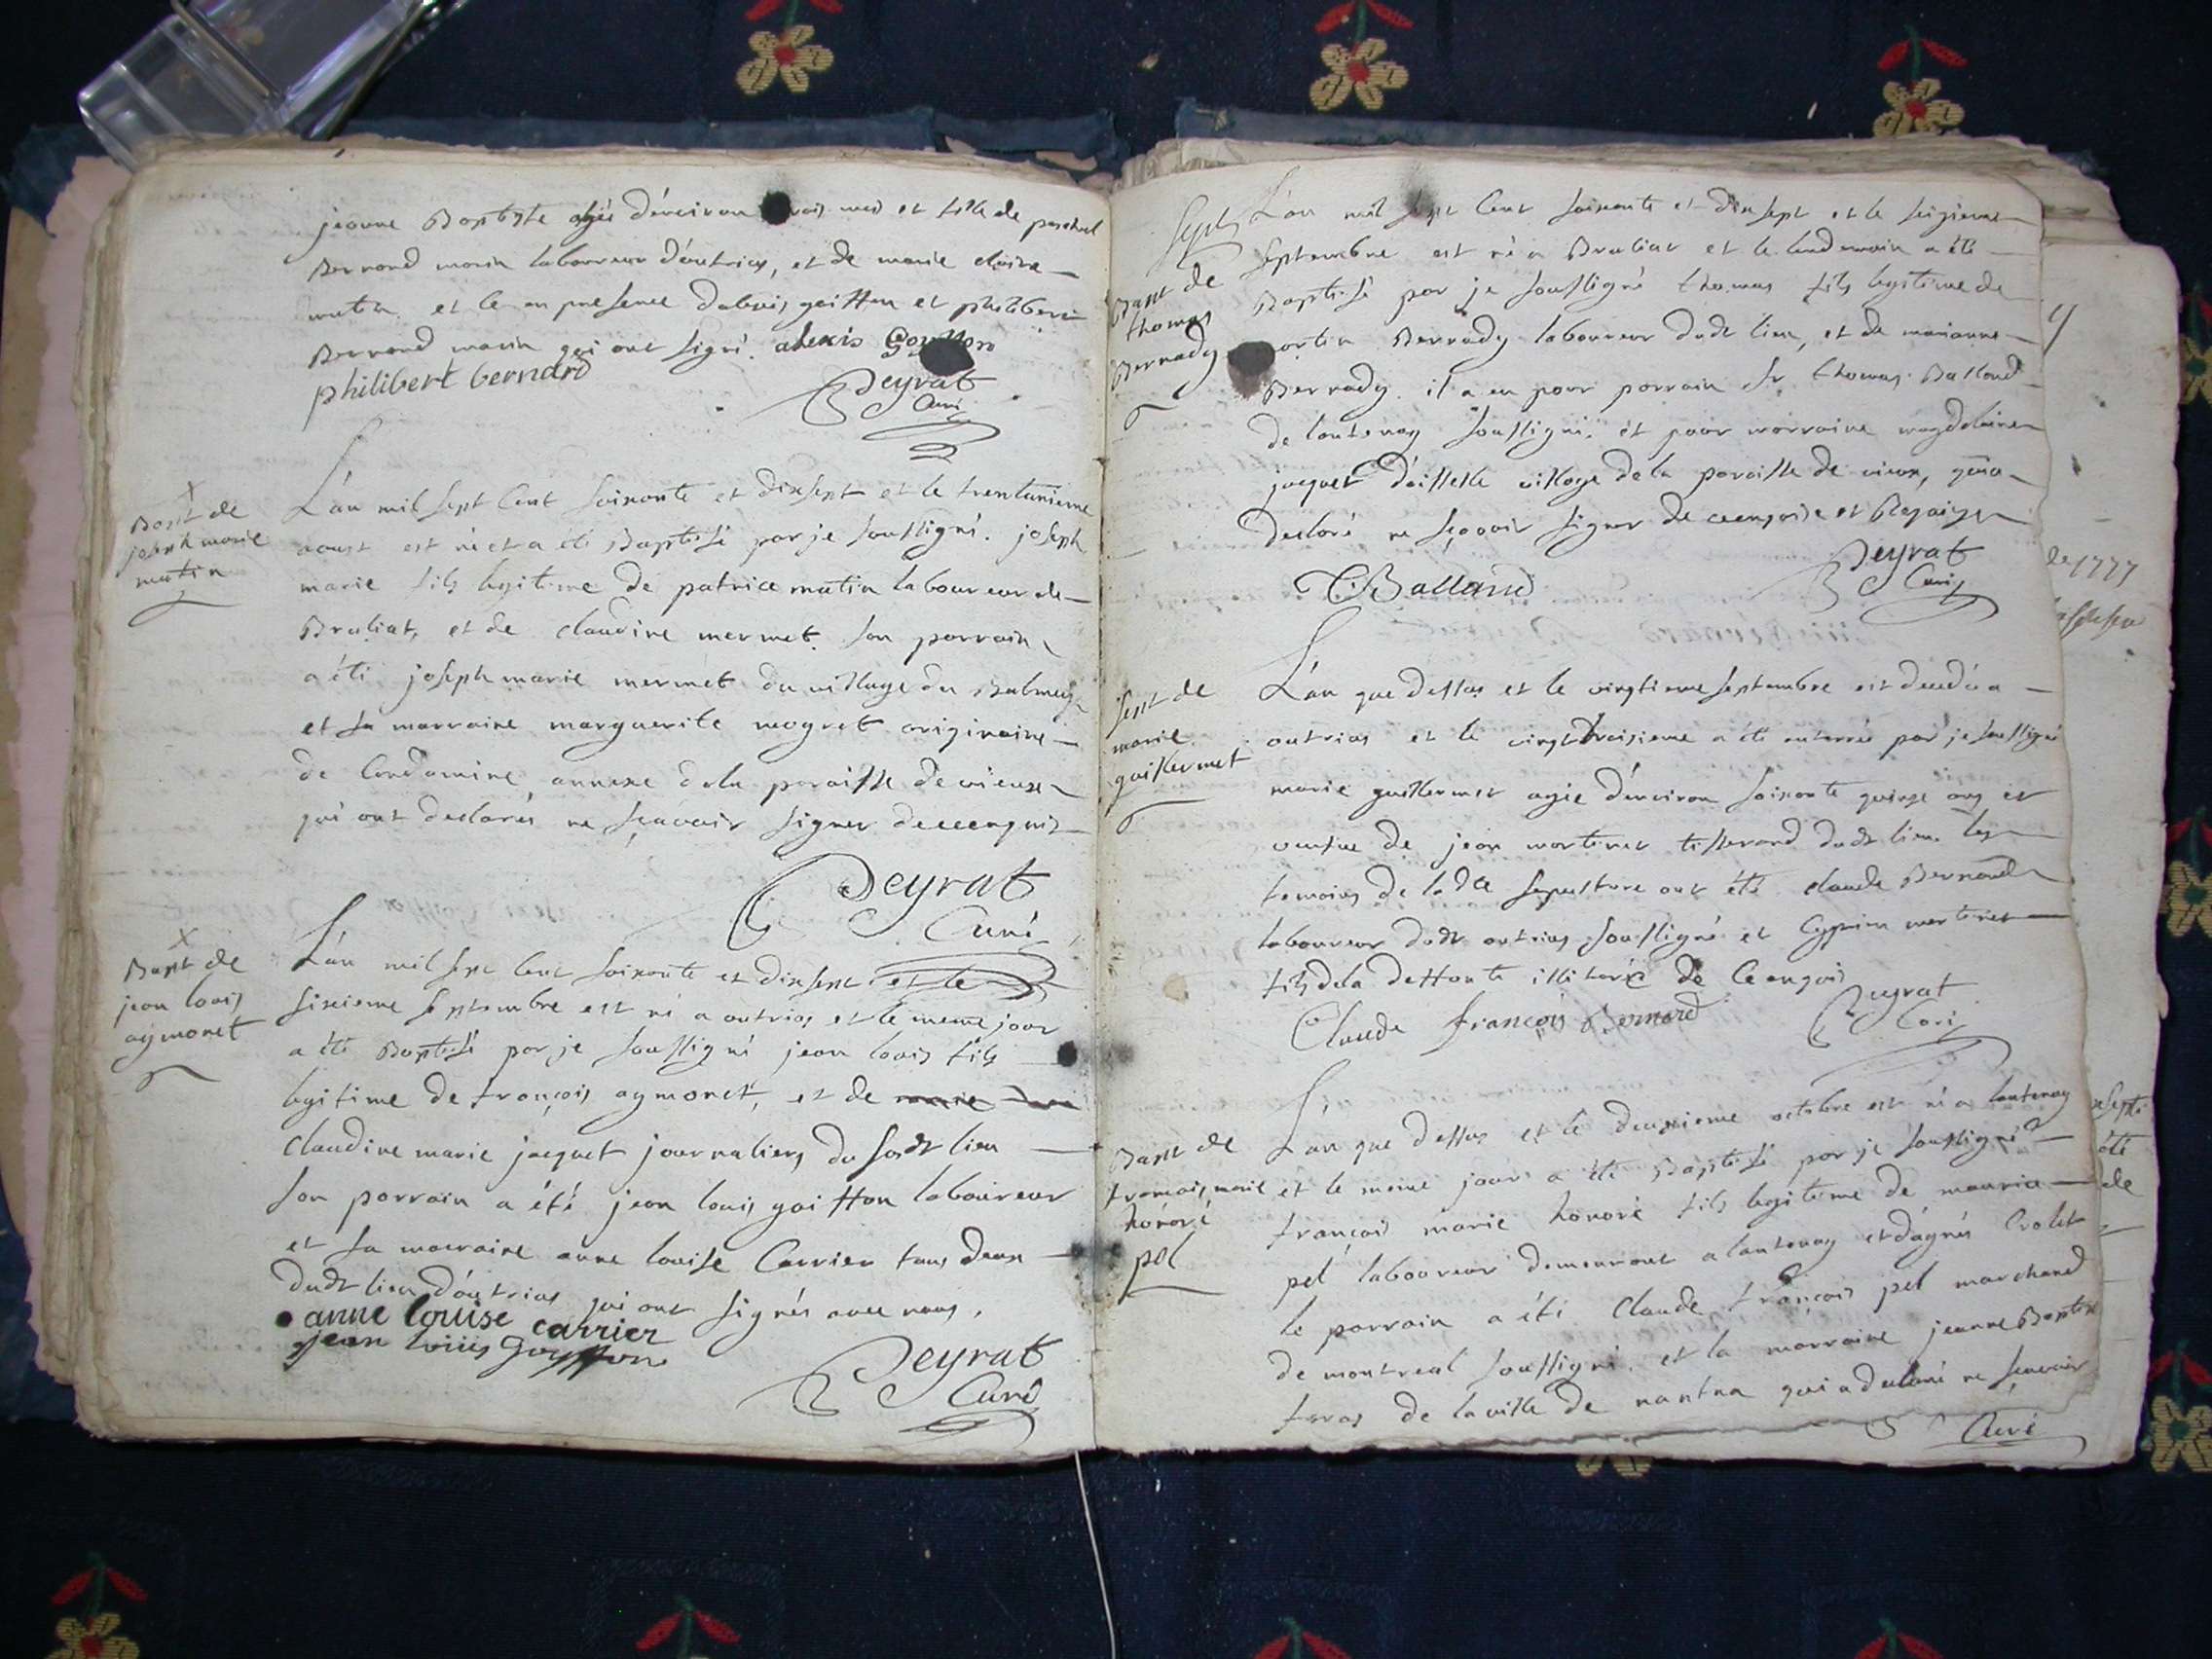 jeanne Baptiste agée d'environ trois mois et fille de
Bernard marin laboureur d'outrias, et de marie claire
mutin. et le en presence d'alexis goiffon et philibert
Bernard marin qui ont signé. alexis Goyffon
philibert bernard
Peyrat
Curé
Bapt de
joseph marie
mutin
L'an mil sept Cent soixante et dixsept et le trentunieme
aoust est né et a été Baptisé par je soussigné. joseph
marie fils legitime de patrice mutin laboureur de
Bruliat, et de claudine mermet. son parrain
a été joseph marie mermet du village du Balmey
et sa marraine marguerite mogret originaire
de Condamine annexe de la paroisse de vieux
qui ont declarés ne sçavoir signer de ce enquis
Peyrat
Curé
Bapt de
jean louis
aymonet
L'an mil sept Cent soixante et dixsept et le
sixieme septembre est né a outrias et le meme jour
a été Baptisé par je soussigné jean louis fils
legitime de françois aymonet, et de marie
claudine marie jacquet journaliers du susdt lieu
son parrain a été jean louis goiffon laboureur
et sa marraine anne louise Carrier tous deux
dudt lieu d'outrias qui ont signés avec nous.
anne louise carrier
jean louis Goyffon
Peyrat
Curé
Sept
Bapt de
thomas
Bernady
L'an mil sept Cent soixante et dixsept et le seizieme
septembre est né a Bruliat et le lendemain a été
Baptisé par je soussigné thomas fils legitime de
martin Bernady laboureur dudt lieu, et de marianne
Bernady. il a eu pour parrain Sr thomas Balland
de lantenay soussigné. et pour marraine magdelaine
jacquet d'aisselle village de la paroisse de vieux, qui a
declaré ne sçavoir signer de ce enquise et
Peyrat
Curé
T Balland
Sept de
marie
guillermet
L'an que dessus et le vingtieme septembre est decedée a
outrias et le vingt troisieme a été enterrée par je soussigné
marie guillermet agée d'environ soixante quinze ans et
veufue de jean martinet tisserand dudt lieu les
temoins de ladte sepulture ont été claude Bernard
laboureur dudt outrias soussigné et Cyprien martinet
fils de la deffunte illiteré de ce enquis
Claude françois Bernard
Peyrat
Curé
Bapt de
françois marie
honoré
pel
L'an que dessus et le deuxieme octobre est né a lantenay
et le meme jour a été Baptisé par je soussigné
françois marie honoré fils legitime de maurice
pel laboureur demeurant a lantenay et d'agnés Crolet
le parrain a été Claude françois pel marchand
de montreal soussigné. et la marraine jeanne Baptiste
de la ville de nantua qui a declaré ne sçavoir
Curé
de 1777
été
de